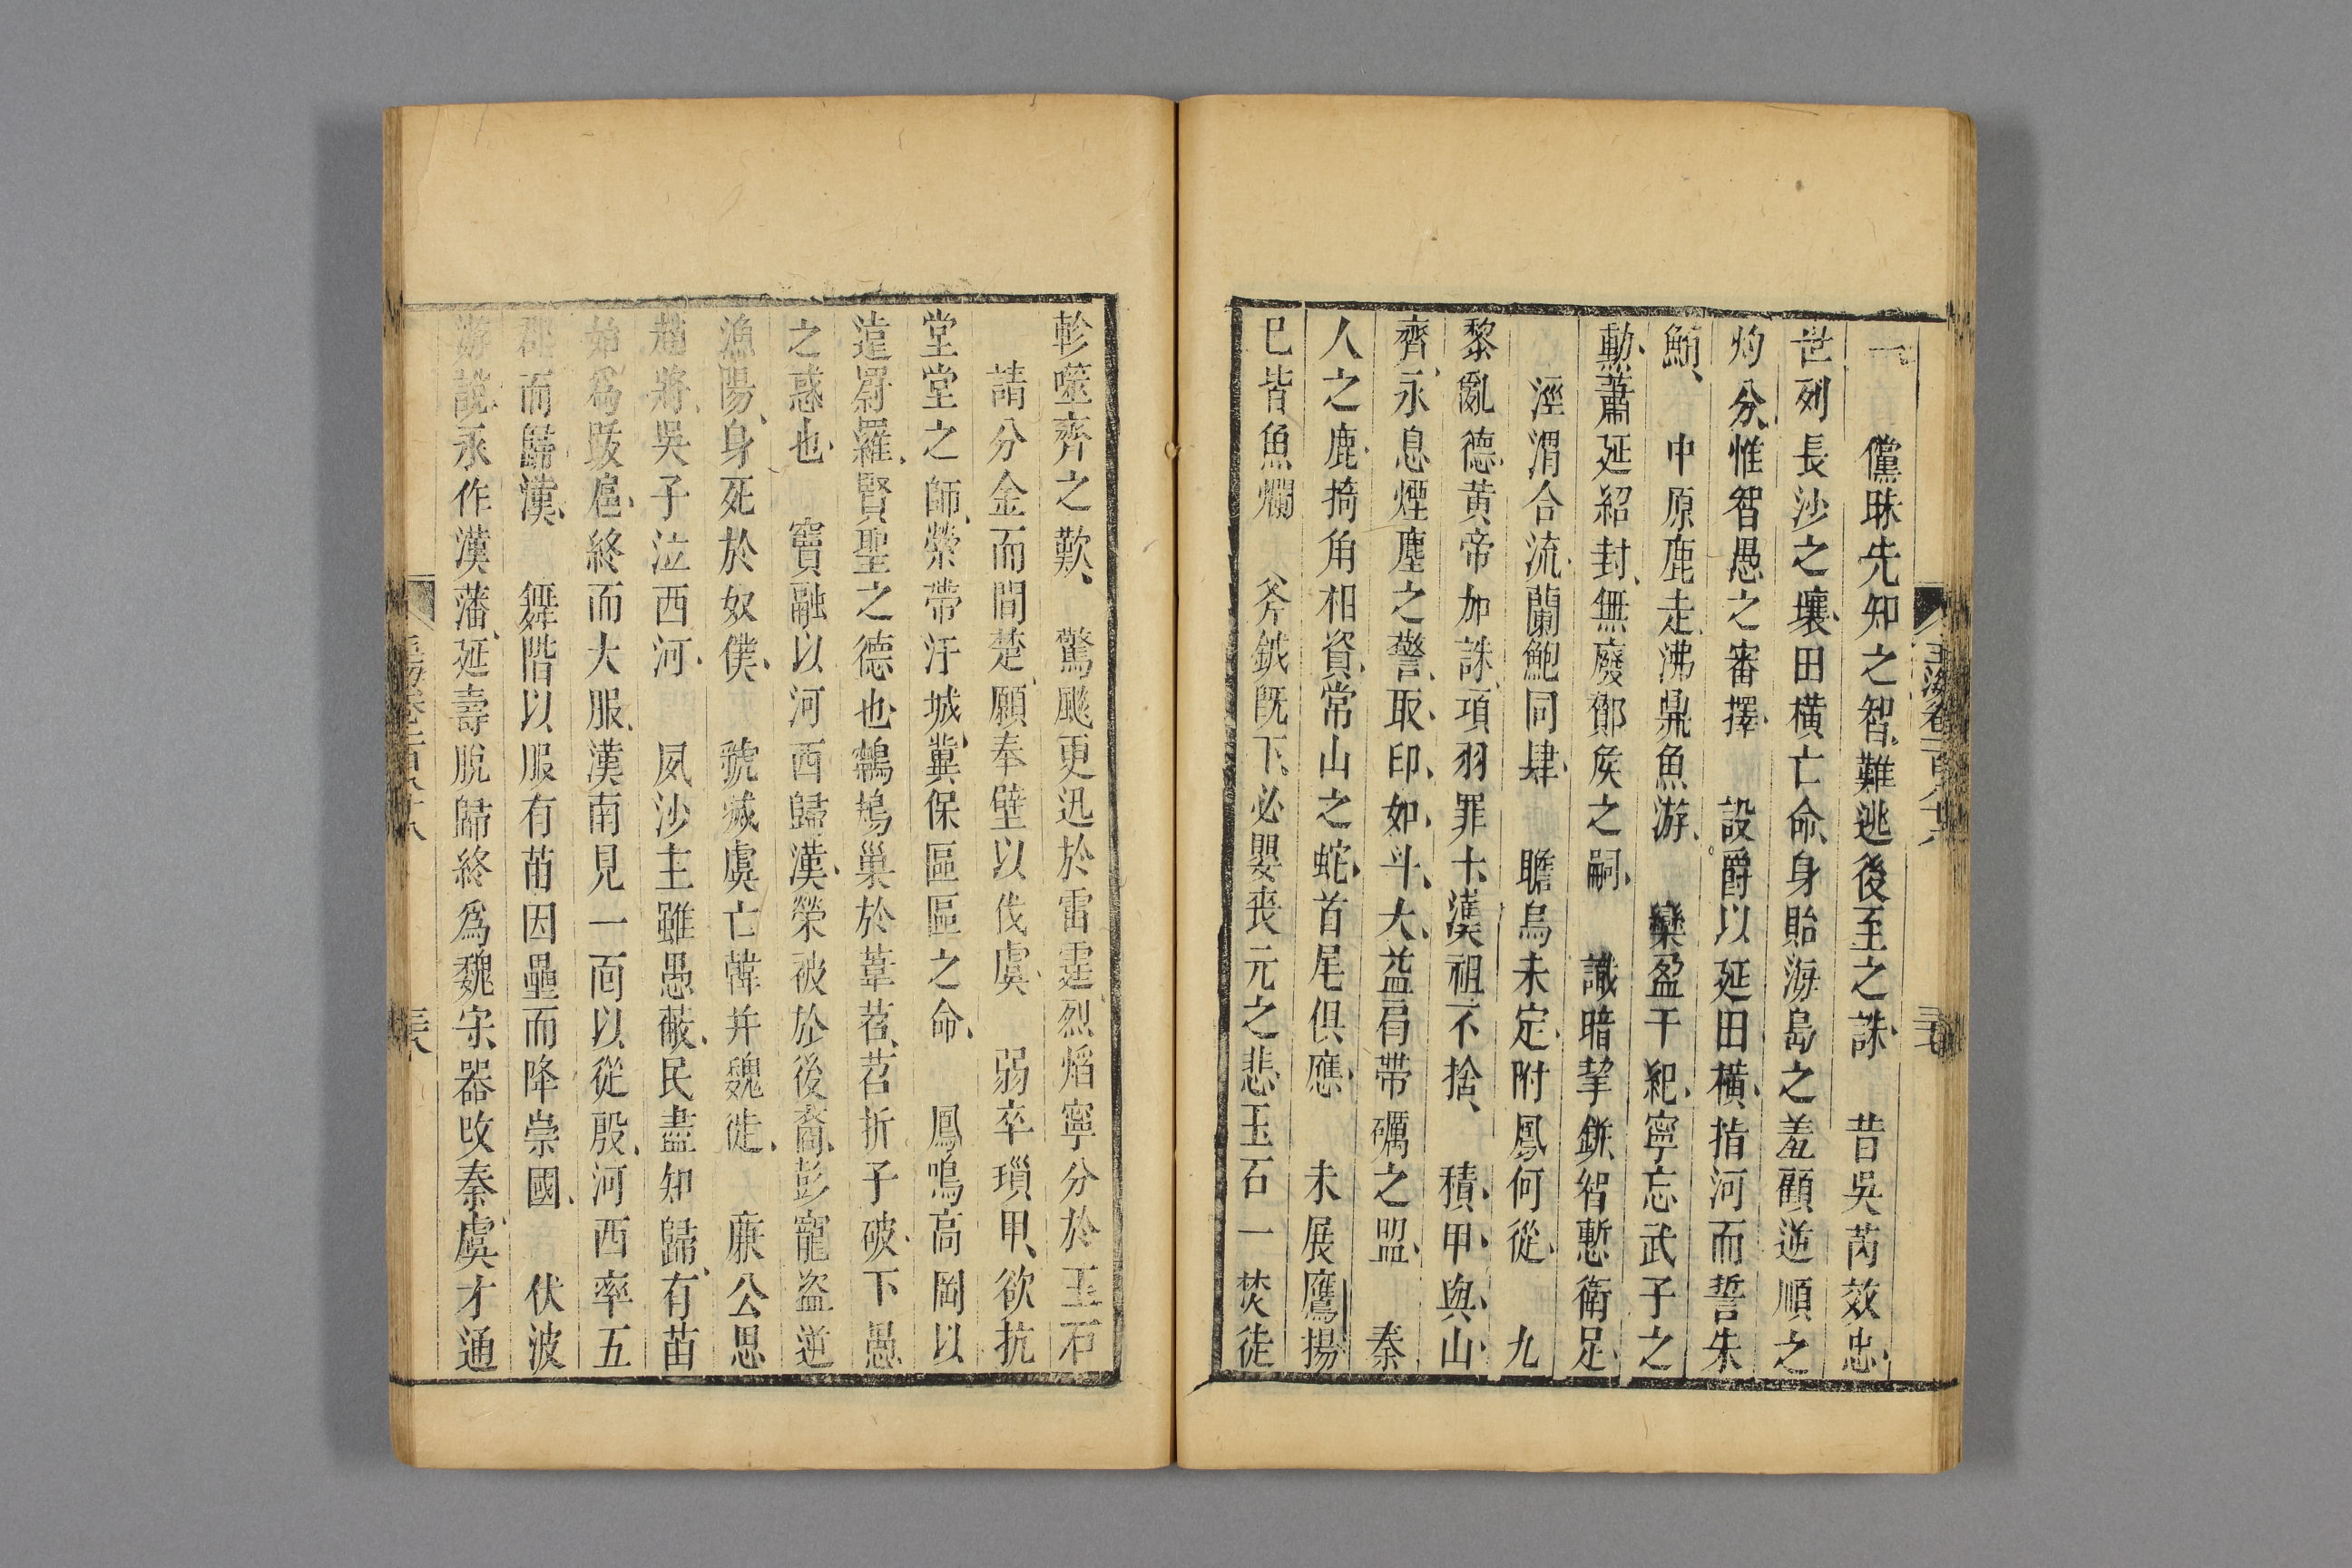 玉海卷二百六
儻昧先知之智難逃後至之誅　昔吳芮效忠
世列長沙之壤田橫亡命身貽海島之羞顧逆順之
灼分惟智愚之審擇　設爵以延田橫指河而誓朱
鮪　中原鹿走沸鼎魚游　欒盈干紀寧忘武子之
勳蕭延紹封無廢酇侯之嗣　識暗挈缾智慙衛足
涇渭合流蘭鮑同肆　瞻烏未定附鳳何從　九
黎亂德黃帝加誅項羽罪十漢祖不捨　積甲與山
齊永息煙塵之警取印如斗大益肩帶礪之盟　秦
人之鹿掎角相資常山之蛇首尾俱應　未展鷹揚
巳皆魚爛　斧鉞旣下必嬰喪元之悲玉石一焚徒
軫噬齊之歎　驚飈更迅於雷霆烈焰寧分於玉石
請分金而間楚願奉璧以伐虞　弱卒瑣甲欲抗
堂堂之師縈帶汙城冀保區區之命　鳳鳴高岡以
遠罻羅賢聖之德也鷦鳩巢於葦苕苕折子破下愚
之惑也　竇融以河西歸漢榮被於後裔彭寵盜逆
漁陽身死於奴僕　虢滅虞亡韓并魏徙　廉公思
趙將吳子泣西河　夙沙主雖愚蔽民盡知歸有苗
始爲跋扈終而大服漢南見一面以從殷河西率五
郡而歸漢　舞階以服有苗因壘而降崇國　伏波
游說永作漢藩延壽脫歸終爲魏守器改秦虞才通